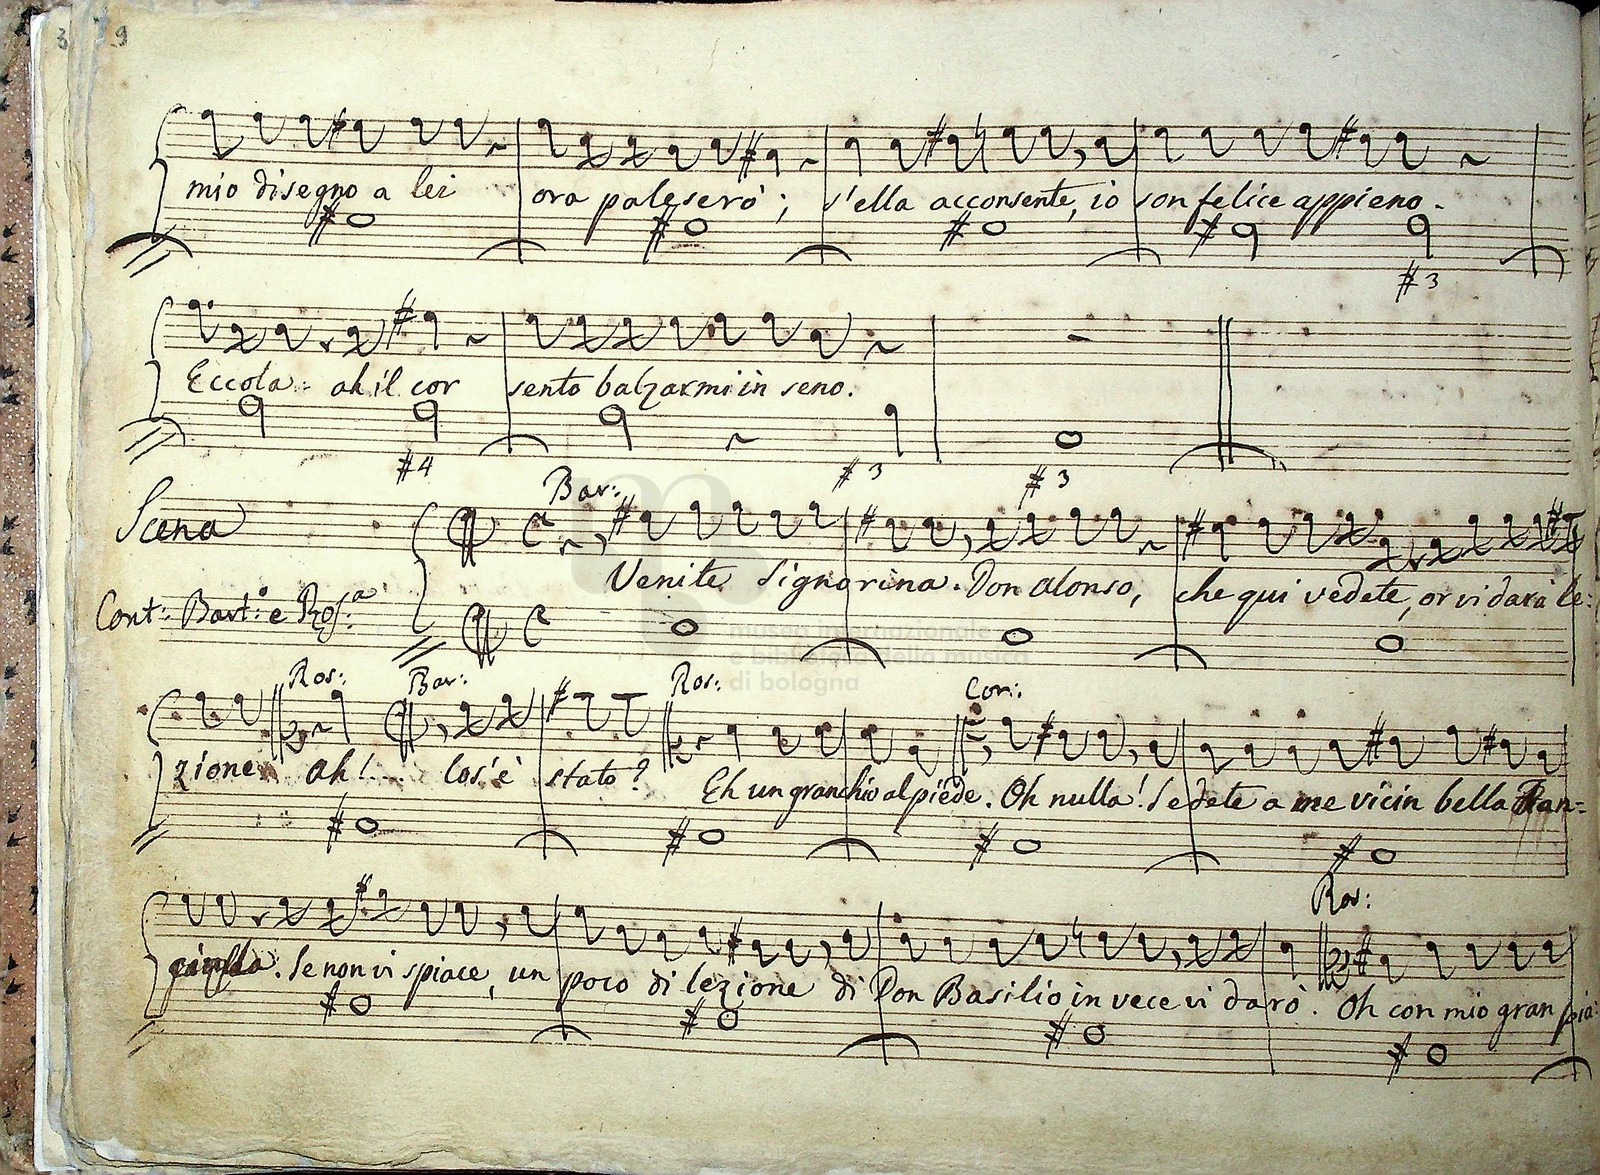 3 9
mio disegno a lei ora paleserò; s'ella acconsente, io son felice appieno.
#3
Eccola. ah il cor sento balzarmi in seno.
#4 #3 #3
Bar:
Scena
Venite Signorina. Don alonso, che qui vedete, or vi darà le:
Cont: Bart:º e Ros:ª
museo internazionale
e biblioteca della musica
di bologna
Ros: Bar: Ros: Con:
zione ah! Cos'è stato? Eh un granchio al piede. Oh nulla! Sedete a me vicin bella Fan=
Ros:
ciulla. Se non vi spiace, un poco di lezione di Don Basilio in vece vi darò. Oh con mio gran pia: